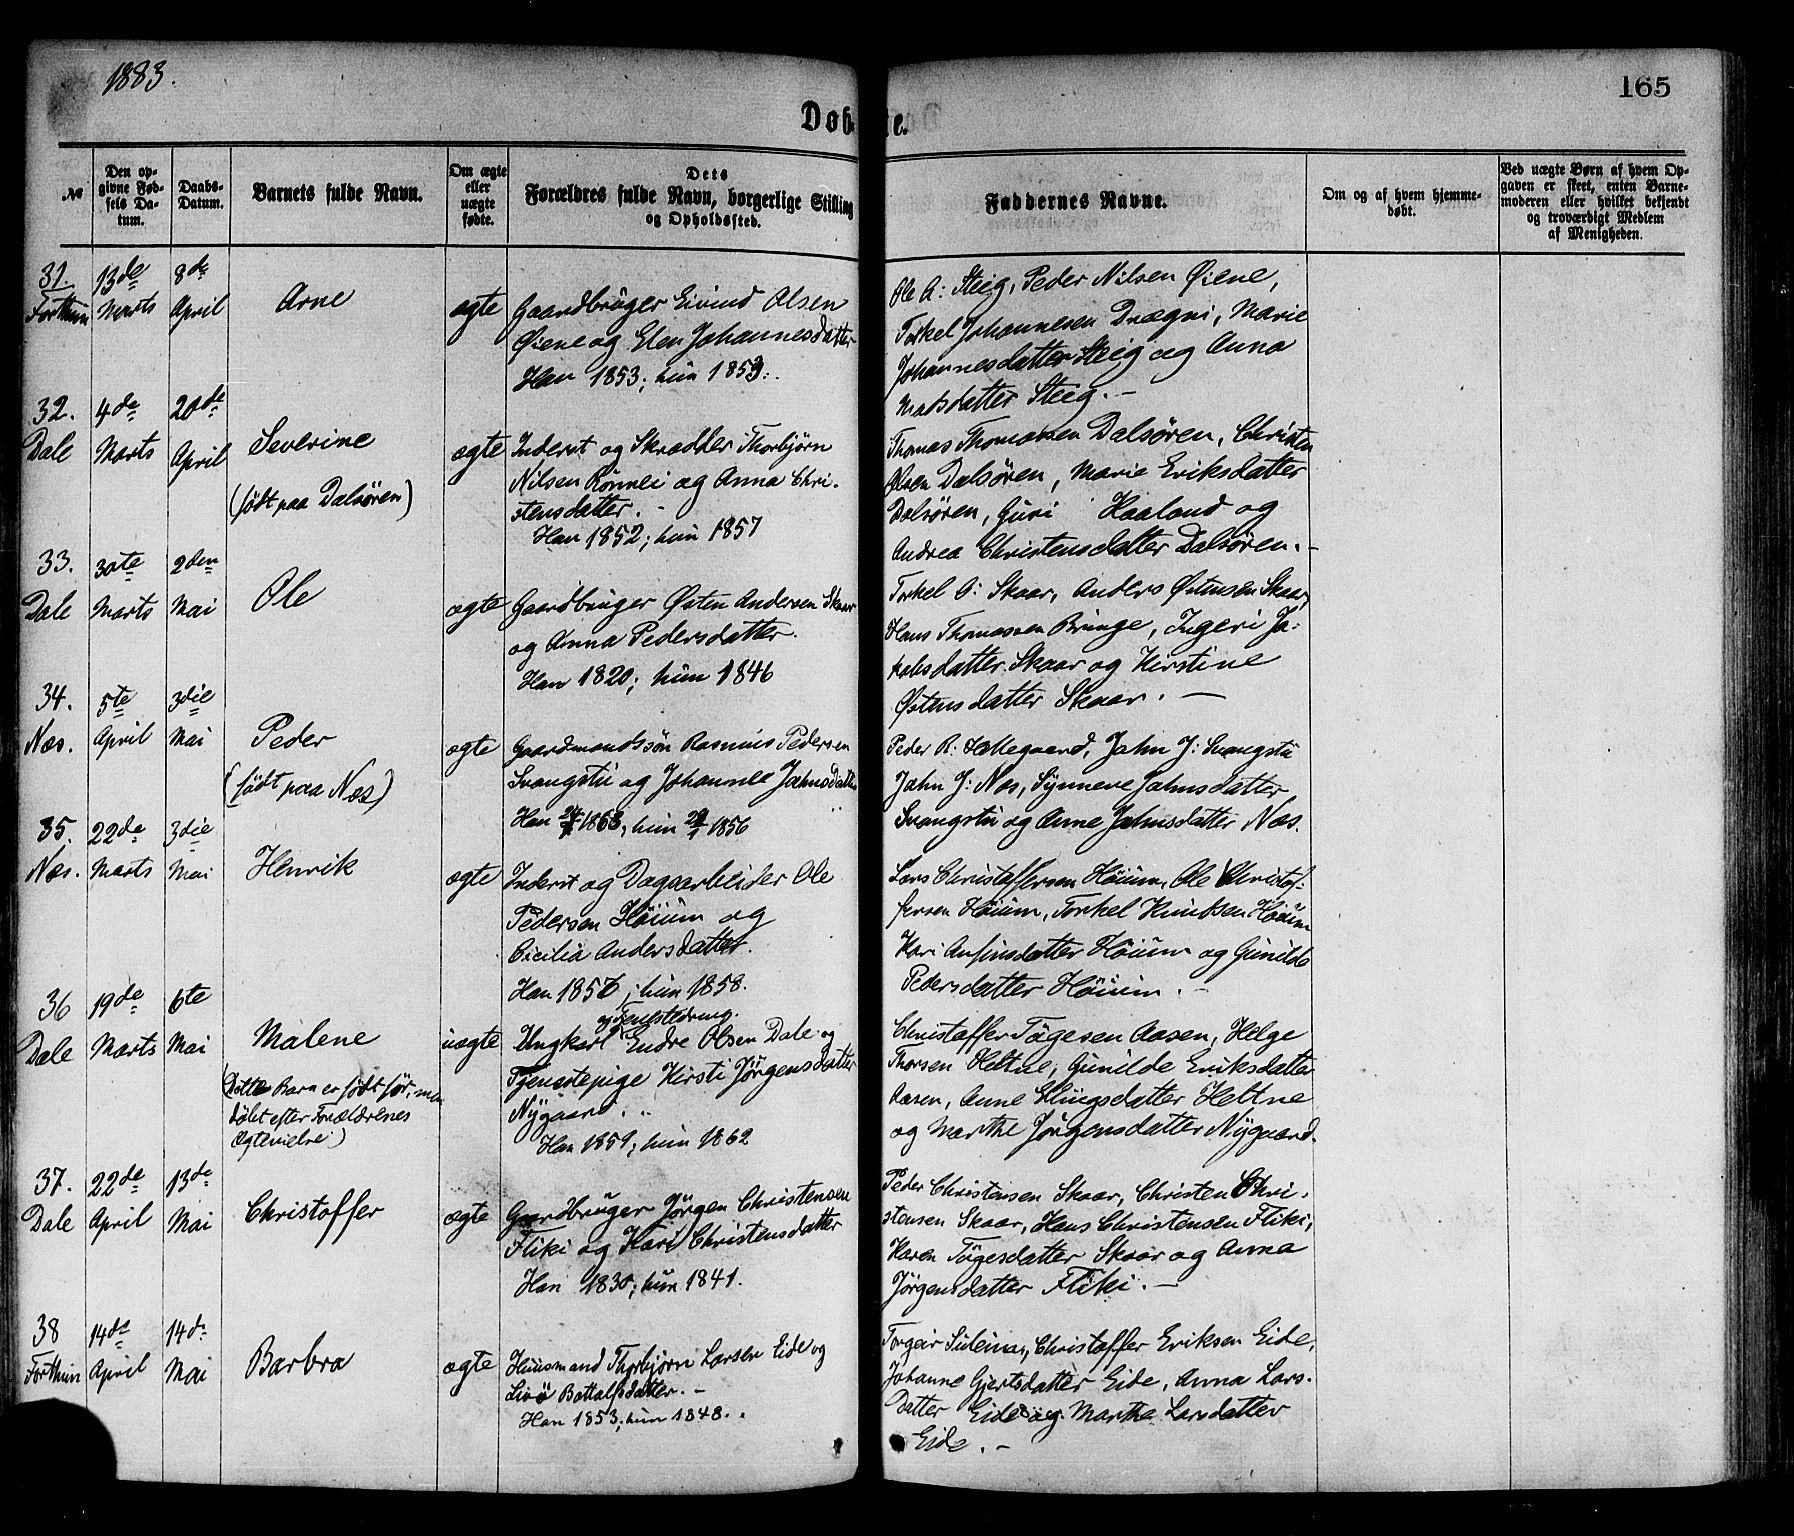 1883.
165
Døb te.
№
Den op-
givne Fød-
sels Da-
tum.
Daabs-
Datum.
Barnets fulde Navn.
Om ægte
eller
uægte
fødte.
Dets
Forældres fulde Navn, borgerlige Stilling
og Opholdssted.
Faddernes Navne.
Om og af hvem hjemme-
døbt.
Ved uægte Børn af hvem Op-
gaven er skeet, enten Barne-
moderen eller hvilket bekjendt
og troværdigt Medlem
af Menigheden.
31.
Forthun
13de
Marts
8de
April
Arne
ægte
Gaardbruger Eivind Olsen
Øiene og Elen Johannesdatter
Han 1853; hun 1853.
Ole A: Steig, Peder Nilsen Øiene,
Torkel Johannesen Drægni, Marie
Johannesdatter Steig og Anna
Madsdatter Steig. –
32.
Dale
4de
Marts
20de
April
Severine
(født paa Dalsøren)
ægte
Inderst og Skrædder Thorbjørn
Nilsen Rønnei og Anna Chri-
stensdatter. –
Han 1852; hun 1857
Thomas Thomassen Dalsøren, Christen
Olsen Dalsøren, Marie Eriksdatter
Dalsøren, Guri Haaland og
Andrea Christensdatter Dalsøren. –
33.
Dale
30te
Marts
2den
Mai
Ole
ægte
Gaardbruger Østen Andersen Skaar
og Anna Pedersdatter.
Han 1820; hun 1846
Torkel A: Skaar, Anders Østensen Skaar,
Hans Thomassen Bringe, Ingeri Ja-
kobsdatter Skaar og Kirstine
Østensdatter Skaar. –
34.
Næs.
5te
April
3die
Mai
Peder
(født paa Næs)
ægte
Gaardmandssøn Rasmus Pedersen
Svangstu og Johanne Jahnsdatter
Han 1863; hun 1856
Peder R: Hallegaard, Jahn J: Svangstu
Jahn J: Næs, Synneve Jahnsdatter
Svangstu og Anne Jahnsdatter Næs.
35.
Næs.
22de
Marts
3die
Mai
Henrik
ægte
Inderst og Dagsarbeider Ole
Pedersen Høium og
Cicilia Andersdatter.
Han 1856; hun 1858.
Lars Christoffersen Høium, Ole Christof-
fersen Høium, Torkel Knudsen Høium
Kari Anfinsdatter Høium og Gunilde
Pedersdatter Høium. –
36
Dale
19de
Marts
6te
Mai
Malene
(Dette Barn er født før, men
døbt efter Forældrenes
Ægtevielse)
uægte
Ungkarl og Tjenestedreng. Endre Olsen Dale og
Tjenestepige Kirsti Jørgensdatter
Nygaard.
Han 1859; hun 1862
Christoffer Tøgesen Aasen, Helge
Thorsen Heltne, Gunilde Eriksdatter
Aasen, Anne Ellingsdatter Heltne
og Marthe Jørgensdatter Nygaard.
37.
Dale
22de
April
13de
Mai
Christoffer
ægte
Gaardbruger Jørgen Christensen
Fliki og Kari Christensdatter
Han 1830; hun 1841.
Peder Christensen Skaar, Christen Chri-
stensen Skaar, Hans Christensen Fliki,
Karen Tøgesdatter Skaar og Anna
Jørgensdatter Fliki. –
38
Forthun
14de
April
14de
Mai
Barbra
ægte
Huusmand Thorbjørn Larsen Eide og
Bottalfsdatter. –
Han 1853; hun 1848.
Torgeir Christoffer Eriksen Eide,
Johanne Gjertsdatter Eide, Anna Lars-
datter Eide og Marthe Larsdatter
Eide. –